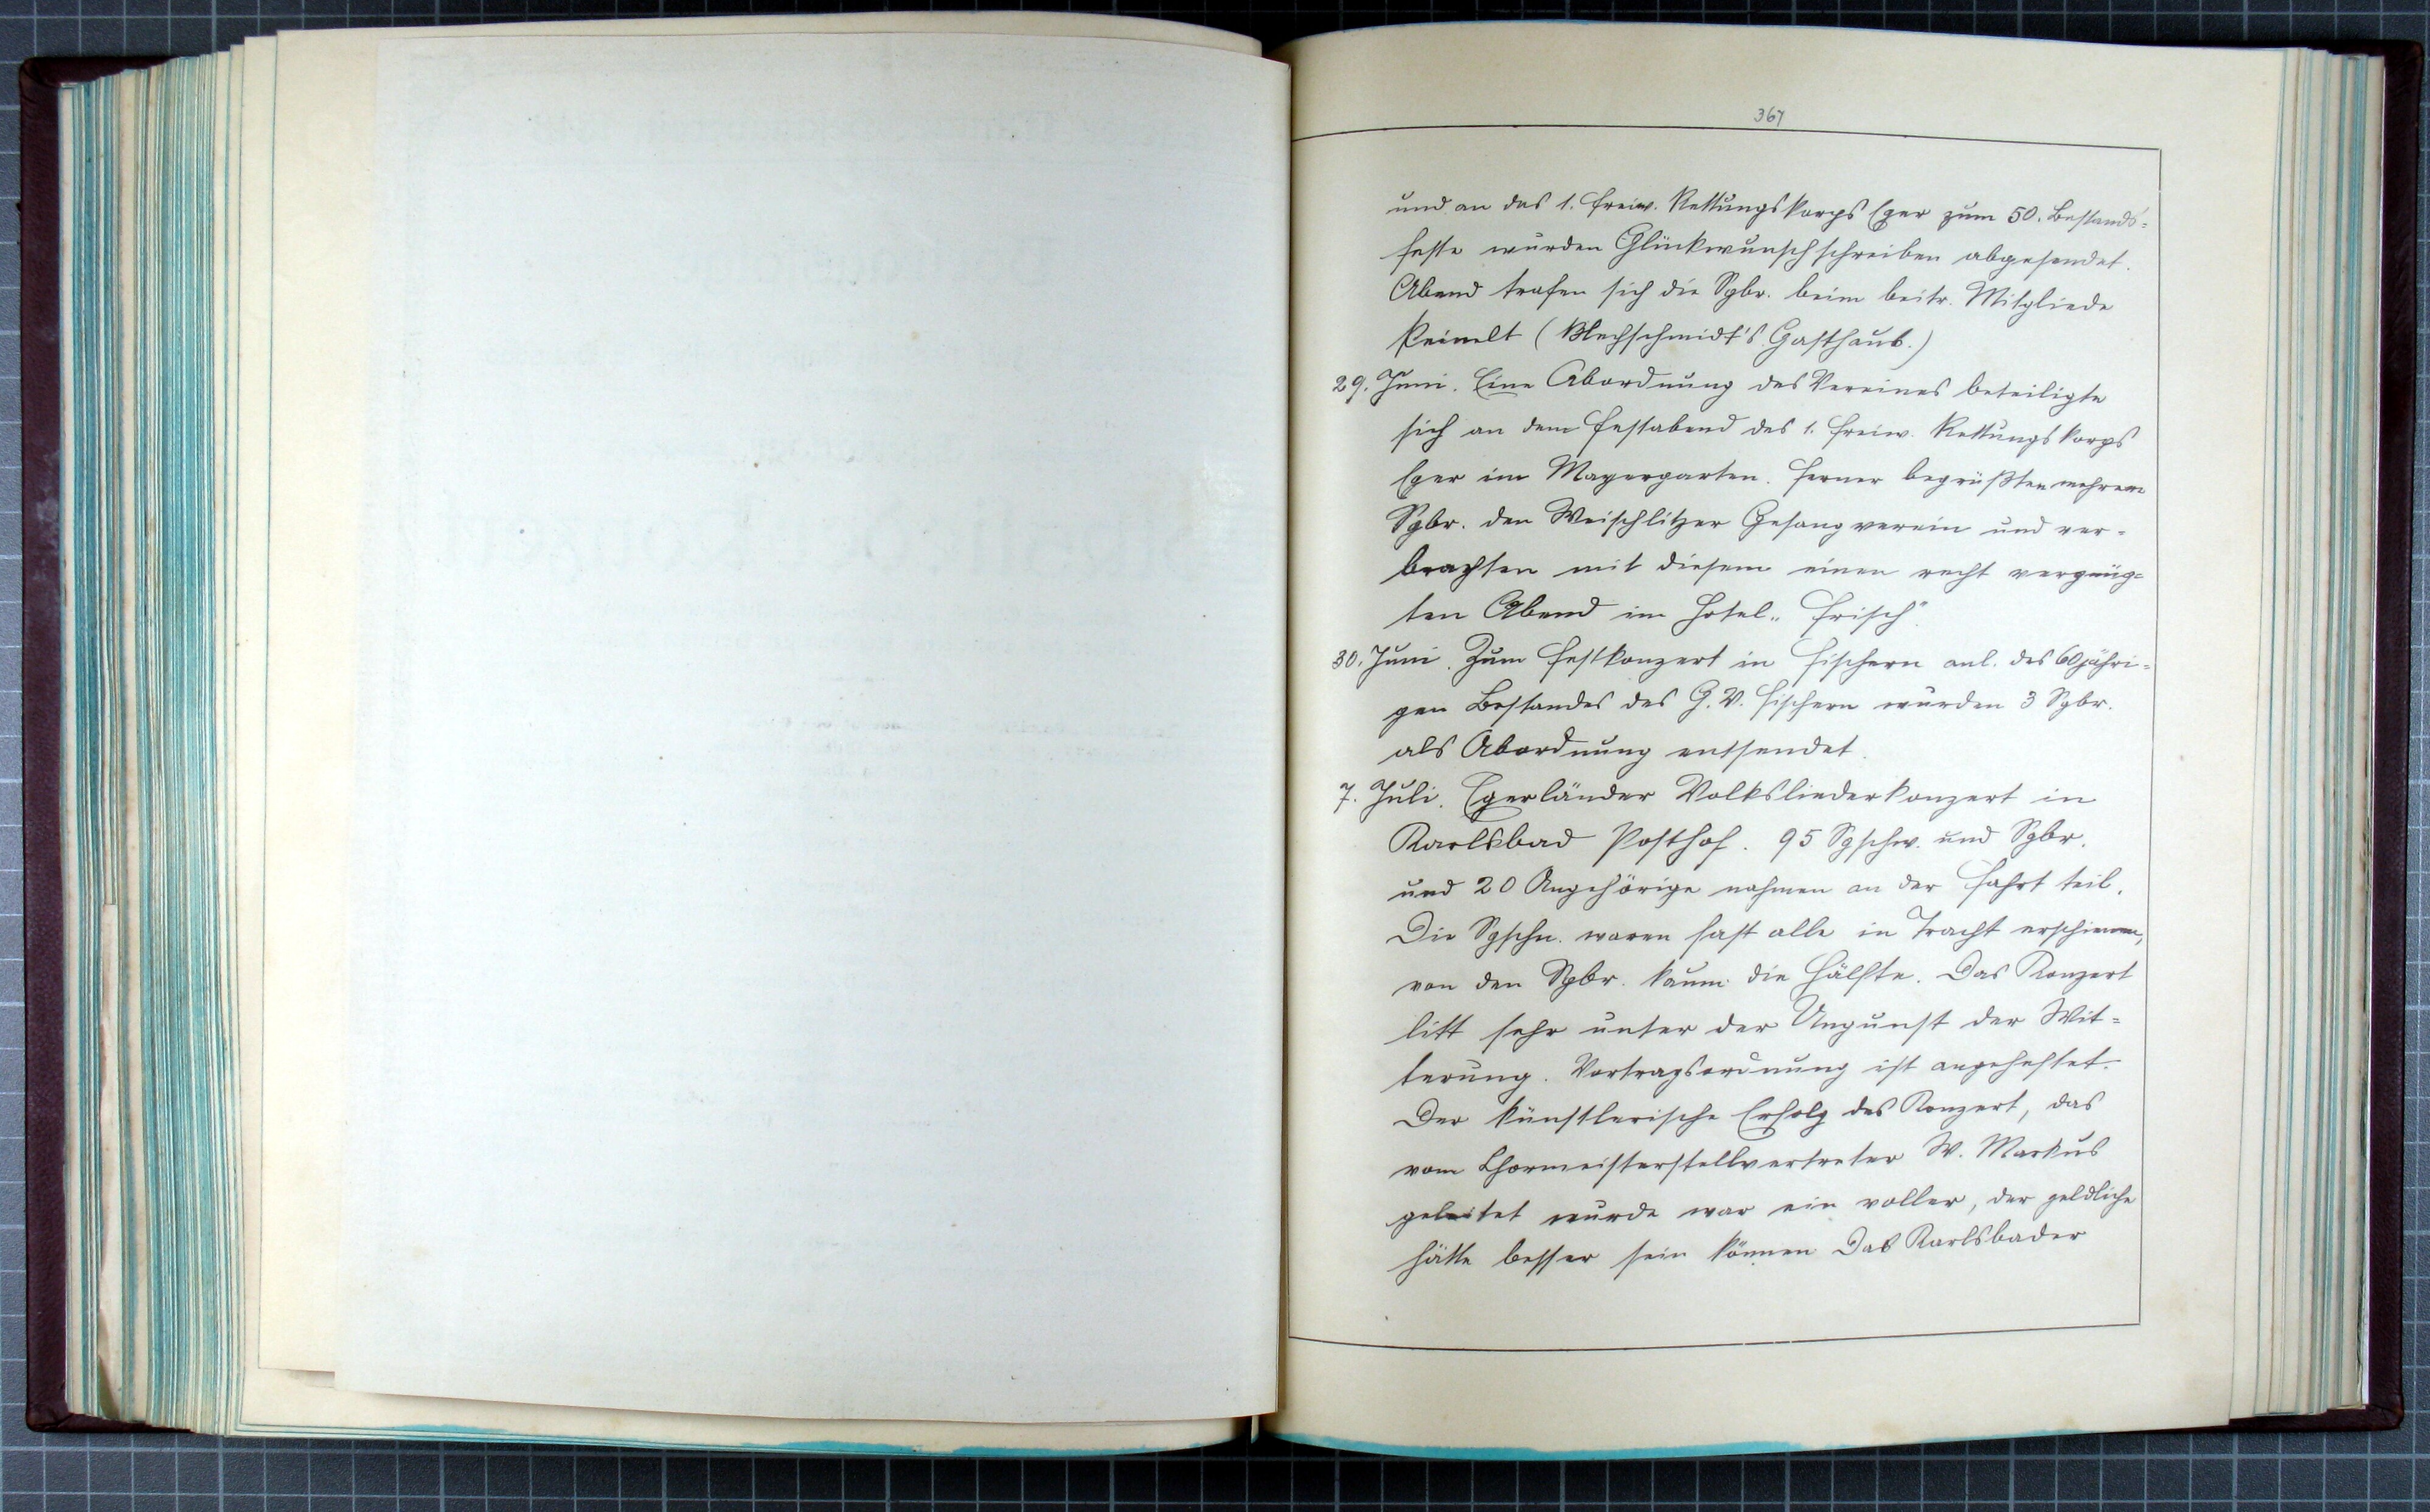 367
und an das 1. freiw. Rettungskorps Eger zum 50. Bestands=
feste wurden Glückwunschschreiben abgesendet.
Abend trafen sich die Sgbr. beim beitr. Mitgliede
Peinelt (Blechschmidt's Gasthaus.)
29. Juni. Eine Abordnung des Vereines beteiligte
sich an dem Festabend des 1. freiw. Rettungskorps
Eger im Mayergarten. Ferner begrüßten mehrere
Sgbr. den Weischlitzer Gesangverein und ver=
brachten mit diesem einen recht vergnüg=
ten Abend im Hotel „Frisch".
30. Juni. Zum Festkonzert in Fischern anl. des 60jähri=
gen Bestandes des G. V. Fischern wurden 3 Sgbr.
als Abordnung entsendet.
7. Juli. Egerländer Volksliederkonzert in
Karlsbad Posthof. 95 Sgschw. und Sgbr.
und 20 Angehörige nahmen an der Fahrt teil.
Die Sgschw. waren fast alle in Tracht erschienen,
von den Sgbr. kaum die Hälfte. Das Konzert
litt sehr unter der Ungunst der Wit=
terung. Vortragsordnung ist angeheftet.
Der künstlerische Erfolg des Konzert, das
vom Chormeisterstellvertreter W. Markus
geleitet wurde war ein voller, der geldliche
hätte besser sein können Das Karlsbader